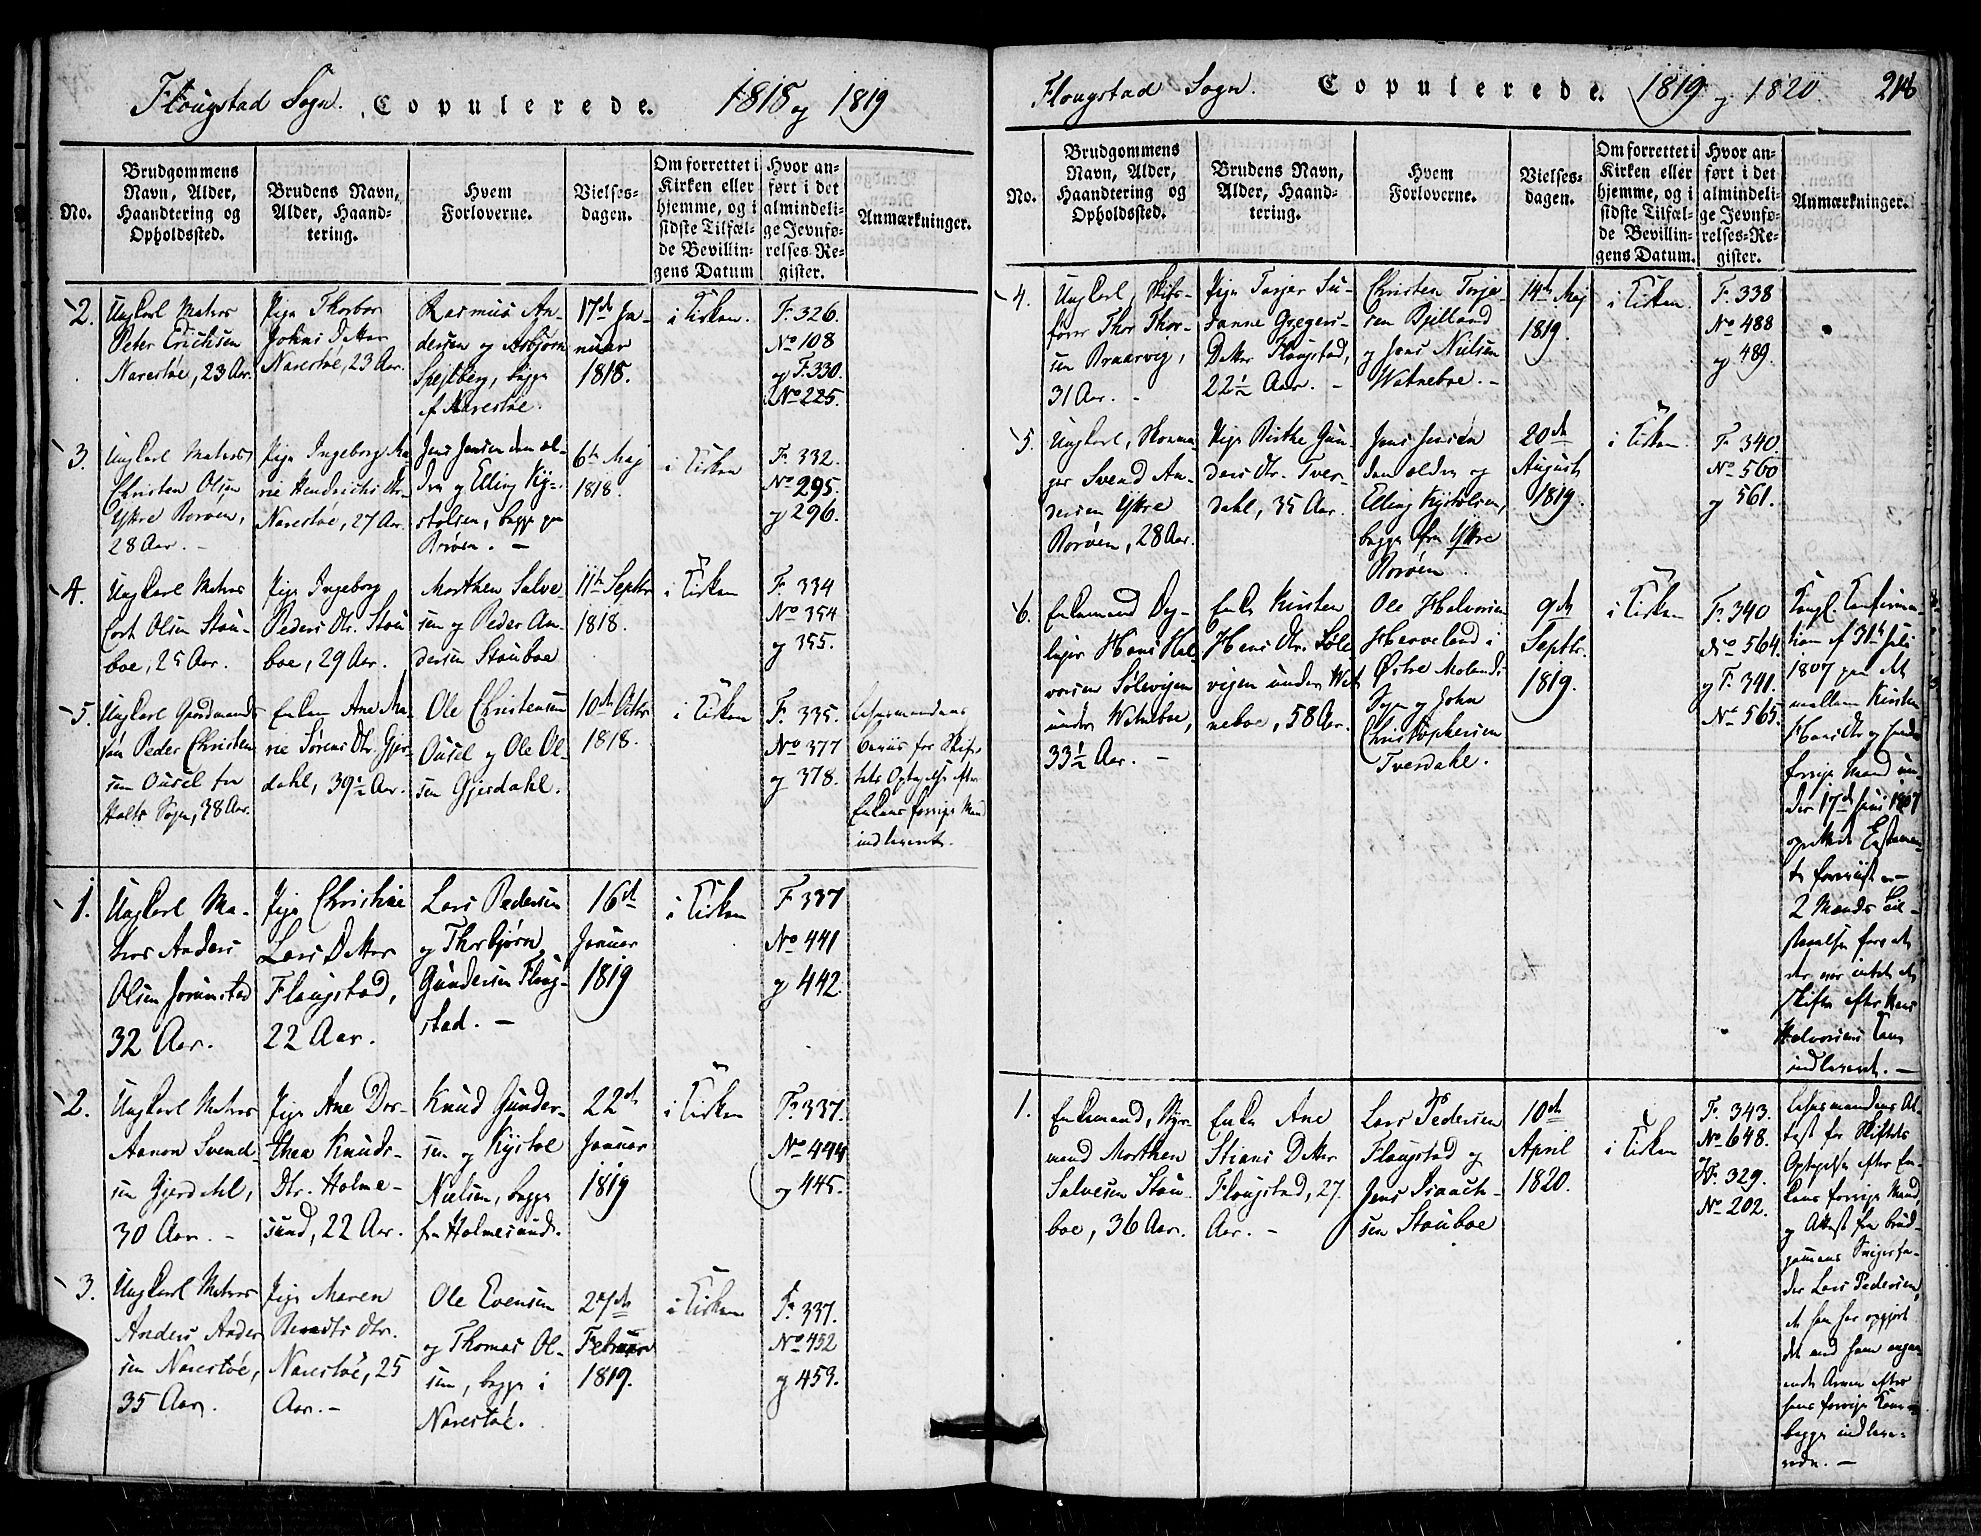 Flougstad Sogn. Copulerede. 1818 og 1819
No.
Brudgommens
Navn, Alder,
Haandtering og
Opholdssted.
Brudens Navn,
Alder, Haand-
tering.
Hvem
Forloverne.
Vielses-
dagen.
Om forrettet i
Kirken eller
hjemme, og i
sidste Tilfæl-
de Bevillin-
gens Datum
Hvor an-
ført i det
almindeli-
ge Jevnfø-
relses-Re-
gister.
Anmærkninger.
2.
Ungkarl Matros
Peter Erichsen
Narestøe, 23 Aar.
Pige Thorbor
Johns Datter
Narestøe, 23 Aar.
Rasmus An-
dersen og Asbjørn
Spejlberg, begge
af Narestøe.
17de Ja-
nuar
1818.
i Kirken.
F. 326.
No 108
og F. 330.
No 225.
3.
Ungkarl Matros
Christen Olsen
Ytre Borøen,
28 Aar. -
Pige Ingeborg Ma
rie Hendrichs Dtr.
Narestøe, 27 Aar.
Jens Jensen den æl-
dre og Elling Ky-
stolsen, begge paa
Borøen. -
6te Maj
1818.
i Kirken
F. 332.
No 295.
og 296.
4.
Ungkarl Matros
Cort Olsen Stau-
boe, 25 Aar.
Pige Ingeborg
Peders Dtr. Stau
boe, 29 Aar.
Morthen Salve
sen og Peder An-
dersen Stauboe
11te Septbr
1818.
i Kirken
F. 334
No 354
og 355.
5.
Ungkarl Gaardmands
søn Peder Christen
sen Ousel fra
Holts Sogn, 38 Aar.
Enken Ane Ma-
rie Sørens Dtr. Gjer
dahl, 39½ Aar.
Ole Christensen
Ousel og Ole Ol-
sen Gjerdahl.
10de Octbr
1818.
i Kirken
F. 335.
No 377
og 378.
Lensmandens
Beviis for Skif-
tets Optagelse efter
Enkens forrige Mand
indleveret.
1.
Ungkarl Ma-
tros Anders
Olsen Jorunstad
32 Aar.
Pige Christine
Lars Datter
Flougstad,
22 Aar.
Lars Pedersen
og Thorbjørn
Gundersen Floug-
stad. -
16de
Januar
1819
i Kirken
F. 337
No 441
og 442.
2.
Ungkarl Matros
Aanon Svend-
sen Gjerdahl,
30 Aar. -
Pige Ane Dor-
thea Knuds-
Dtr. Holme-
sund, 22 Aar.
Knud Gunder-
sen og Kystol
Nielsen, begge
fra Holmesund.
22de
Januar
1819
i Kirken
F. 337.
No 444
og 445.
3.
Ungkarl Matros
Anders Ander
sen Narestøe,
35 Aar.
Pige Maren
Berents Dtr.
Narestøe, 25
Aar. -
Ole Evensen
og Thomas Ol-
sen, begge i
Narestøe.
27de
Februar
1819.
i Kirken
F. 337.
No 452
og 453.
Flougstad Sogn. Copulerede. 1819 og 1820.
No.
Brudgommens
Navn, Alder,
Haandtering og
Opholdssted.
Brudens Navn,
Alder, Haand-
tering.
Hvem
Forloverne.
Vielses-
dagen.
Om forrettet i
Kirken eller
hjemme, og i
sidste Tilfæl-
de Bevillin-
gens Datum.
Hvor an-
ført i det
almindeli-
ge Jevnfø-
relses-Re-
gister.
Anmærkninger.
4.
Ungkarl, Skibs-
fører Thor Thor-
sen Braarvig,
31 Aar. -
Pige Tarjer Su-
sanne Gregers-
Datter Flougstad,
22½ Aar. -
Christen Terje-
sen Bjelland
og Jens Nielsen
Watneboe. -
14de Maj
1819.
i Kirken.
F. 338
No 488
og 489.
5.
Ungkarl, Skoma-
ger Svend An-
dersen Ytre
Borøen, 28 Aar.
Pige Birthe Gun-
ders Dtr. Tver-
dahl, 35 Aar.
Jens Jensen
den ældre og
Elling Kystolsen,
begge fra Ytre
Borøen.
20de
August
1819.
i Kirken.
F. 340.
No 560
og 561.
6.
Enkemand Dag-
lejer Hans Hal-
vorsen Sølevigen
under Watneboe,
33½ Aar. -
Enke Kirsten
Hans Dtr. Søle
vigen under Wat
neboe, 58 Aar.
Ole Halvorsen
Herreland i
Østre Molands
Sogn og John
Christophersen
Tverdahl.
9de
Septbr.
1819.
i Kirken
F. 340
No 564.
og F. 341.
No 565.
Kongl. Confirma-
tion af 31te Juli
1807 paa det
mellem Kirsten
Hans Dtr og hendes
forrige Mand un-
der 17de Juni 1807
oprettede Testamen-
te foreviist. -
2 Mænds Til-
staaelse for at
der var intet at
skifte efter Hans
Halvorsens Kone
indleveret. -
1.
Enkemand, Styr-
mand Morthen
Salvesen Stau-
boe, 36 Aar.
Enke Ane
Stians Datter
Flougstad, 27
Aar. -
Lars Pedersen
Flougstad og
Jens Isaach-
sen Stauboe
10de
April
1820.
i Kirken
F. 343.
No 648.
og F. 329.
No 202.
Lensmandens At-
test for Skiftets
Optagelse efter En-
kens forrige Mand,
og Attest fra Brud-
gommens Svigerfa-
der Lars Pedersen,
at han har opgjort
det med ham angaa-
ende Arven efter
hans forrige Kone
begge indleve-
rede. -